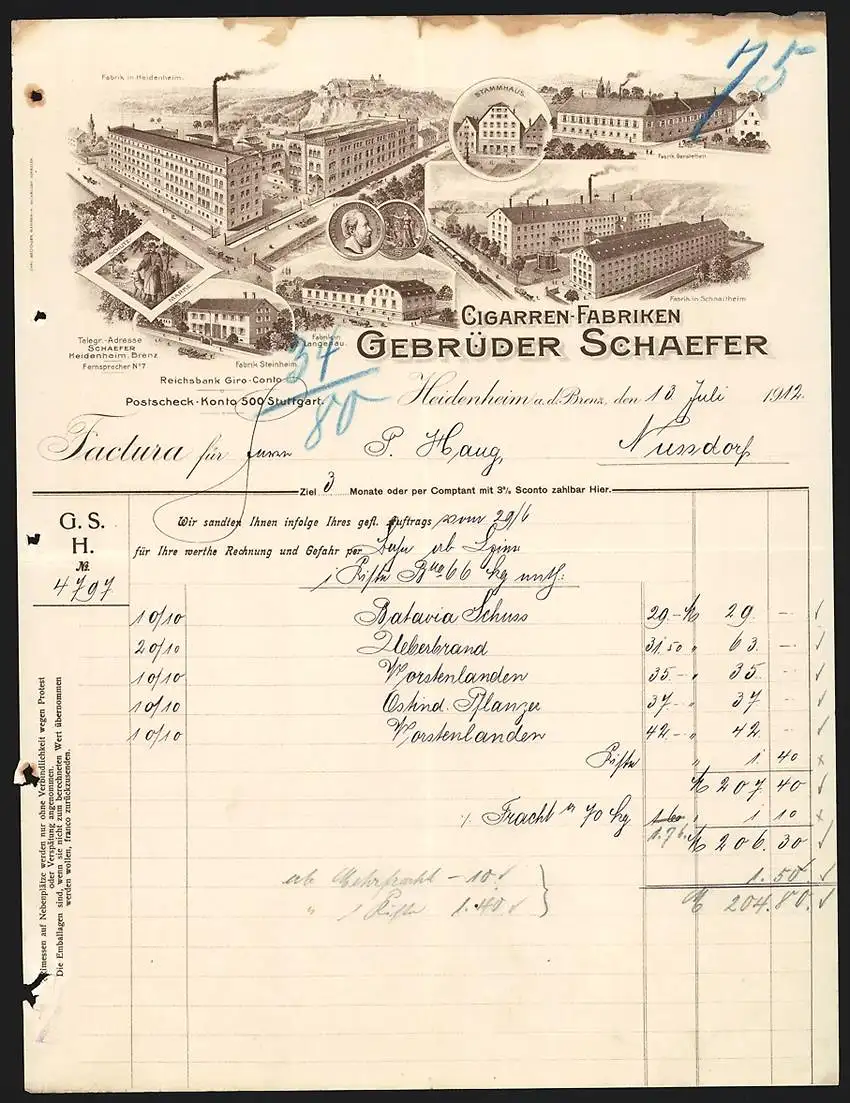 75
Fabrik in Heidenheim.
STAMMHAUS.
Fabrik Gerstetten
SCHUTZ-
MARKE
Fabrik in Schnaitheim
Fabrik in Langenau.
Fabrik Steinheim.
CIGARREN-FABRIKEN
GEBRÜDER SCHAEFER
Telegr.-Adresse
SCHAEFER
Heidenheim, Brenz
Fernsprecher No 7
Reichsbank Giro-Conto
Postscheck-Konto 500 Stuttgart.
34
80
Heidenheim a.d. Brenz, den 13 Juli 1912.
Factura für Herrn P. Haug, Nussdorf
Ziel 3 Monate oder per Comptant mit 3% Sconto zahlbar Hier.
G. S.
H.
No.
4797
Wir sandten Ihnen infolge Ihres gefl. Auftrags vom 29/6
für Ihre werthe Rechnung und Gefahr per
1 Kiste Bto 66 kg enth:
10/10 Batavia Schuss 29.- M 29 -
20/10 Ueberbrand 31.50 " 63 -
10/10 Vorstenlanden 35.- " 35 -
10/10 Ostind. Pflanzer 37.- " 37 -
10/10 Vorstenlanden 42.- " 42 -
Kiste " 1 40
M 207 40
Fracht 70 kg 1.60 " 1 10
1.76
M 206 30
ab Mehrfracht - 10
1.50
" 1 Kiste 1.40
M 204.80
Rimessen auf Nebenplätze werden nur ohne Verbindlichkeit wegen Protest
oder Verspätung angenommen.
Die Emballagen sind, wenn sie nicht zum berechneten Wert übernommen
werden wollen, franco zurückzusenden.